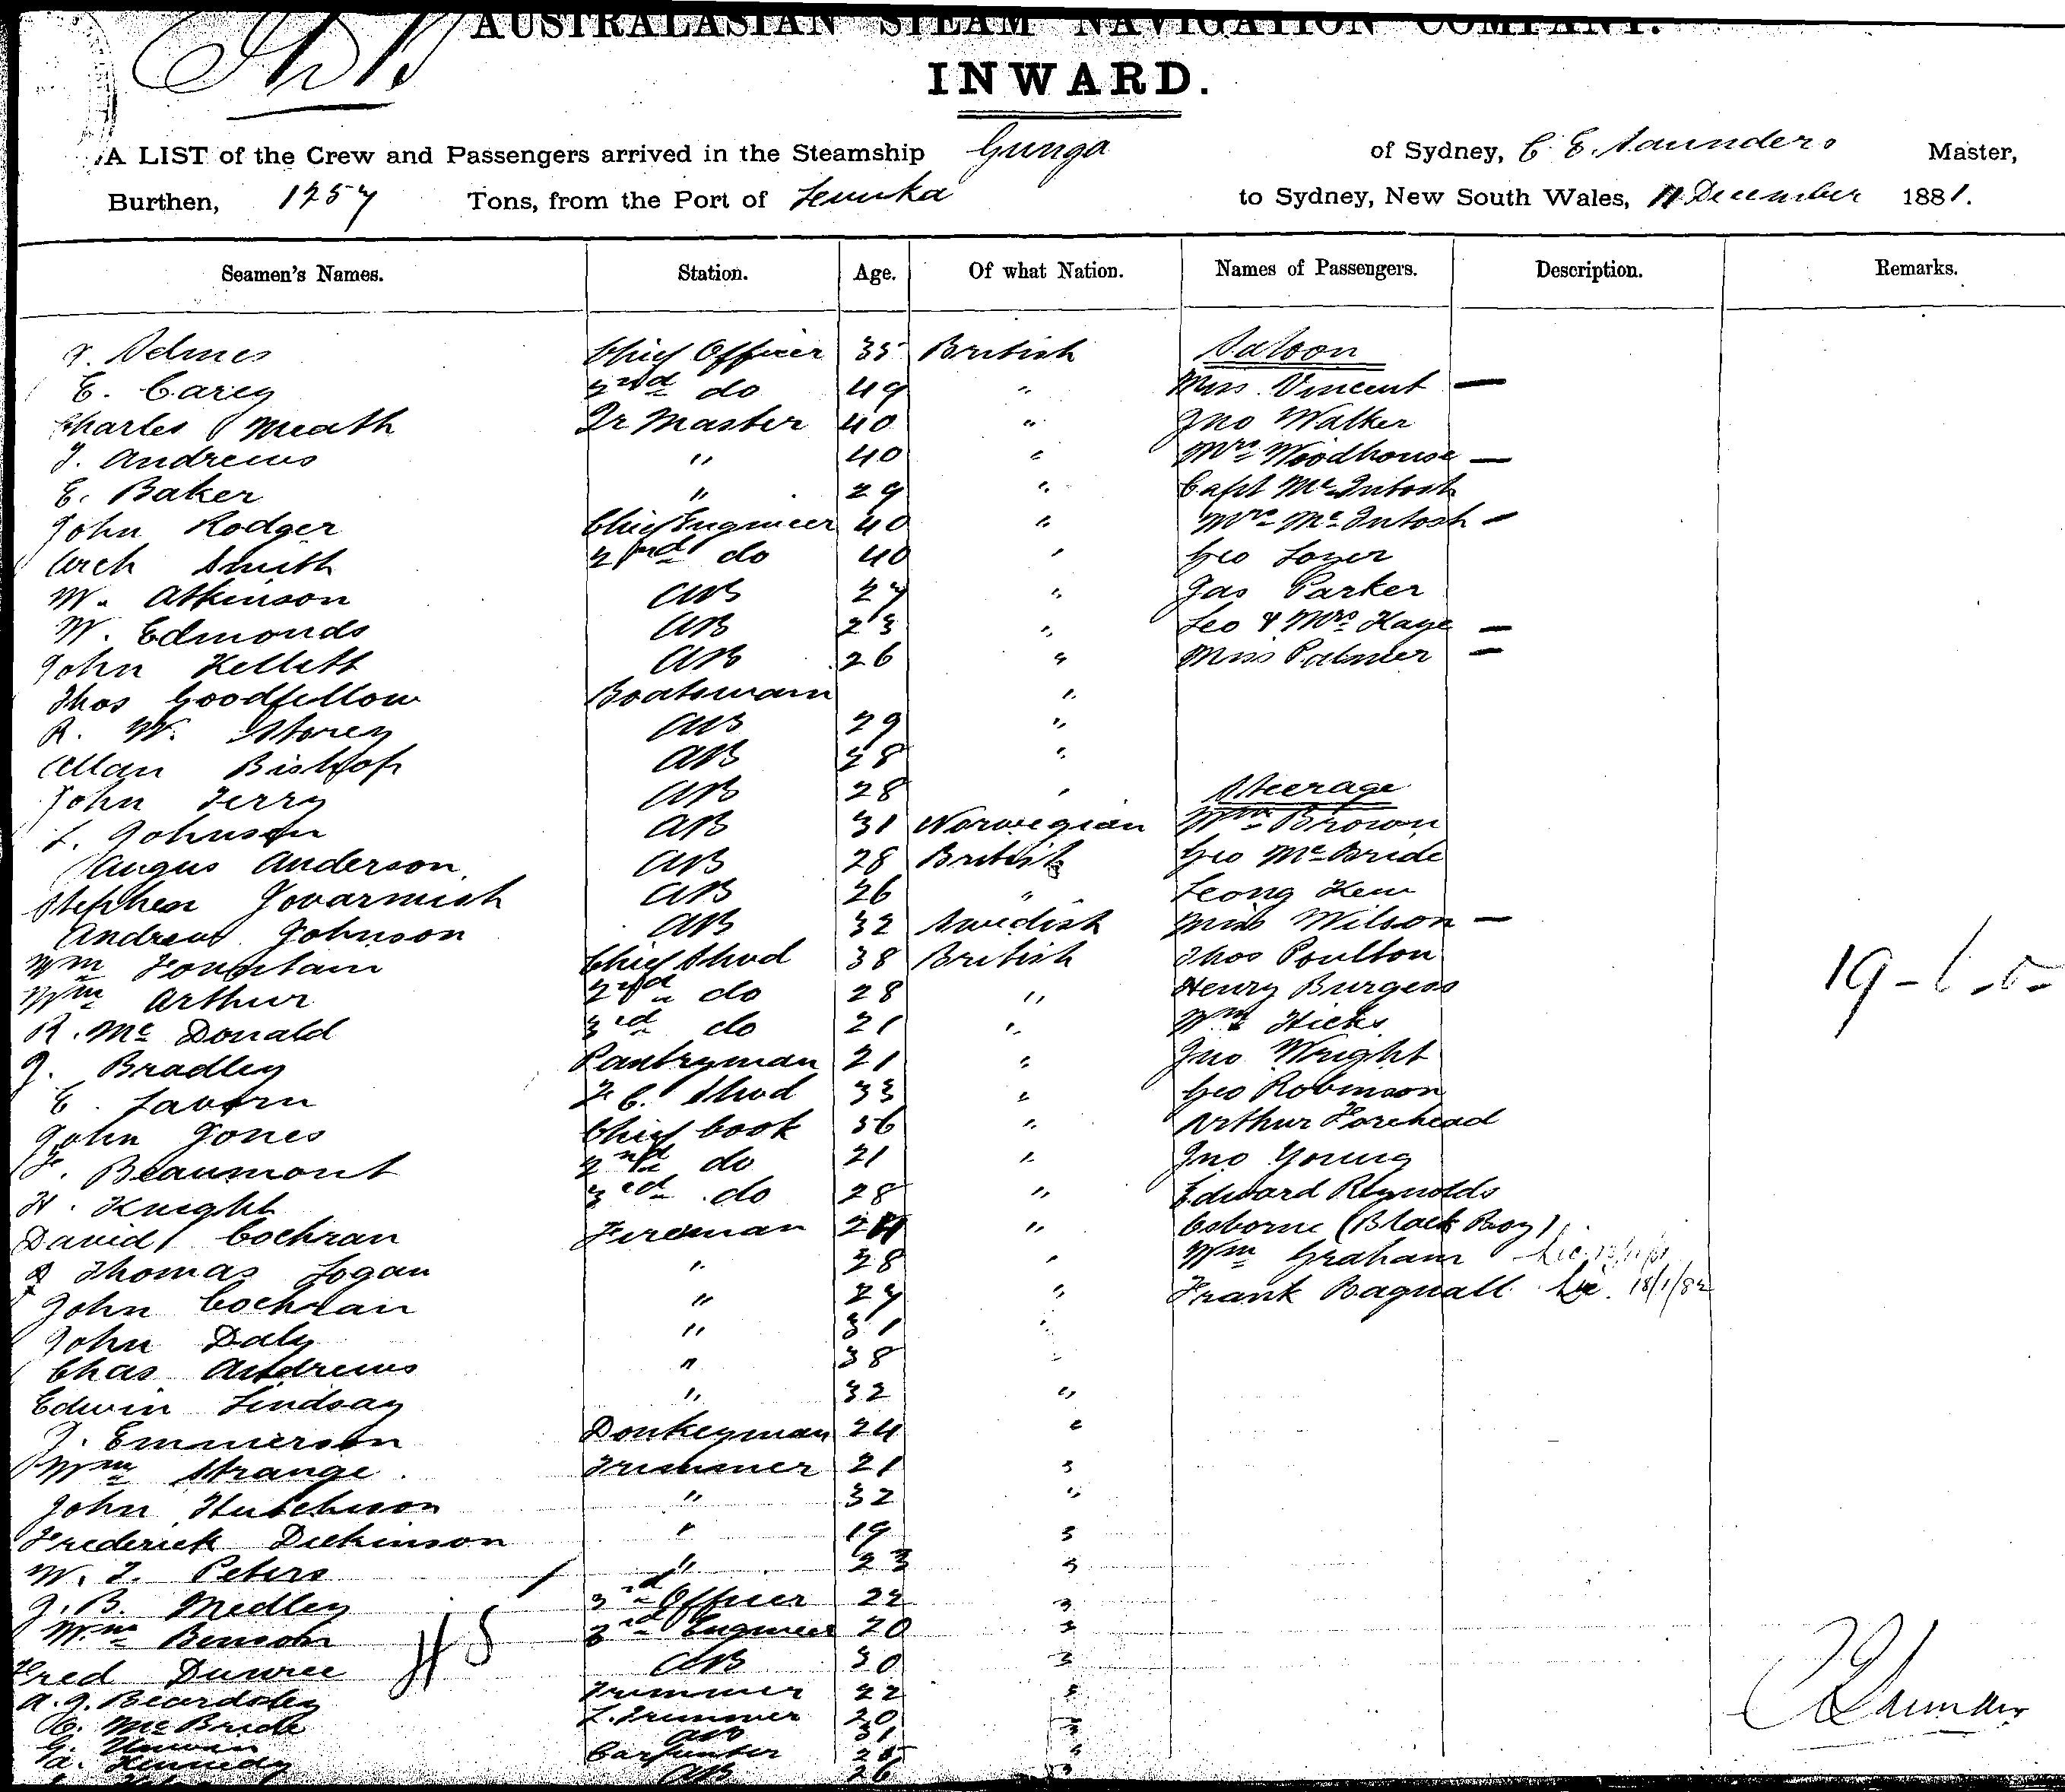 AUSTRALASIAN STEAM NAVIGATION COMPANY.
INWARD.
A LIST of the Crew and Passengers arrived in the Steamship Gunga of Sydney, C. E. Saunders Master,
Burthen, 1257 Tons, from the Port of Levuka to Sydney, New South Wales, 11 December 1881.
Seamen's Names. Station. Age. Of what Nation. Names of Passengers. Description. Remarks.
Chief Officer 35 British Saloon
E. Carey 2nd do 49 " Miss Vincent —
Charles Meath Qr Master 40 " Jno Walker
J. Andrews " 40 " Mrs Woodhouse —
E. Baker " 29 " Capt McIntosh
John Rodger Chief Engineer 40 " Mrs McIntosh —
Arch Smith 2nd do 40 " Geo
W. Atkinson AB 27 " Jas Parker
W. Edmonds AB 23 " Leo & Mrs Kaye —
John Kellett AB 26 " Miss Palmer —
Thos Goodfellow Boatswain "
R. W. Storey AB 29 "
Allan Bishop AB 28 "
John Terry AB 28 " Steerage
L. Johnson AB 31 Norwegian Wm Brown
Angus Anderson AB 28 British Geo McBride
Stephen AB 26 " Leong Kew
Andrew Johnson AB 32 Swedish Miss Wilson —
Wm Fountain Chief Stwd 38 British Thos Poulton
Wm Arthur 2nd do 28 " Henry Burgess
R. McDonald 3rd do 21 " Wm Hicks
J. Bradley Pantryman 21 " Jno Wright
E. F.C. Stwd 33 " Geo Robinson
John Jones Chief Cook 36 " Arthur Forehead
F. Beaumont 2nd do 21 " Jno Young
H. Knight 3rd do 28 " Edward Reynolds
David Cochran Fireman " Osborne (Black Boy)
Thomas Logan " 28 " Wm Graham
John Cochran " 27 " Frank Bagnall 18/1/82
John Daly " 31 "
Chas Andrews " 38 "
Edwin Lindsay " 32 "
J. Emmerson Donkeyman 24 "
Wm Strange Trimmer 21 "
John Hutchison " 32 "
Frederick Dickinson " 19 "
W. J. Peters " 23 "
J. B. Medley 3rd Officer 22 "
Wm Benson 3rd Engineer 20 "
Fred AB 30 "
A. J. Beardsley Trimmer 22 "
McBride Trimmer 20 "
AB 31 "
Kennedy Carpenter "
AB 26 "
45